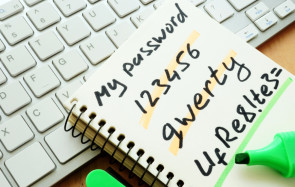 My password
123456
qwerty
UfRe8lte3=